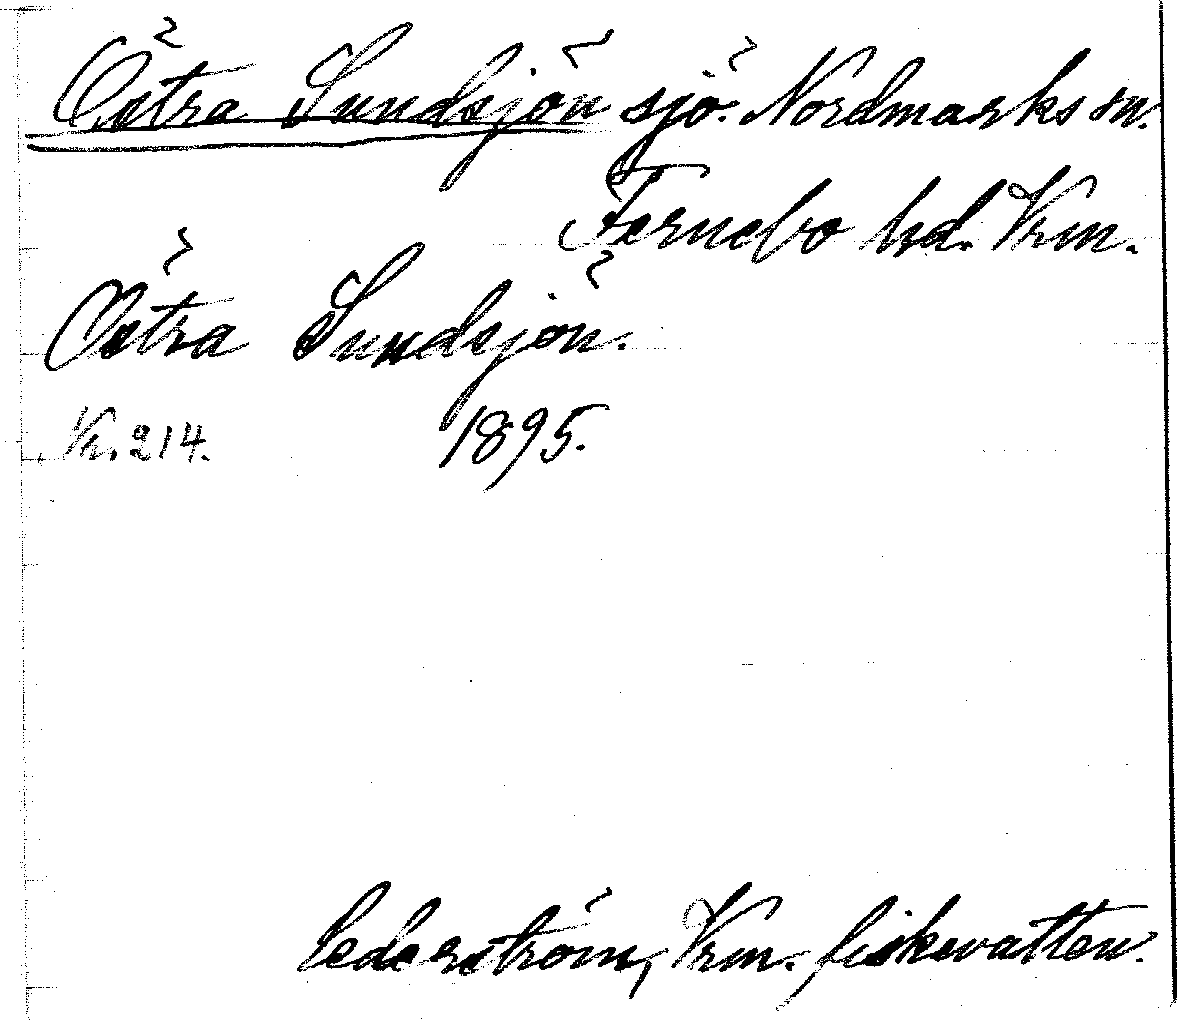 Östra Sundsjön sjö. Nordmarks sn.
Fernebo hd. Vrm.
Östra Sundsjön.
Nr. 214. 1895.
Cederström, Vrm. fiskevatten.